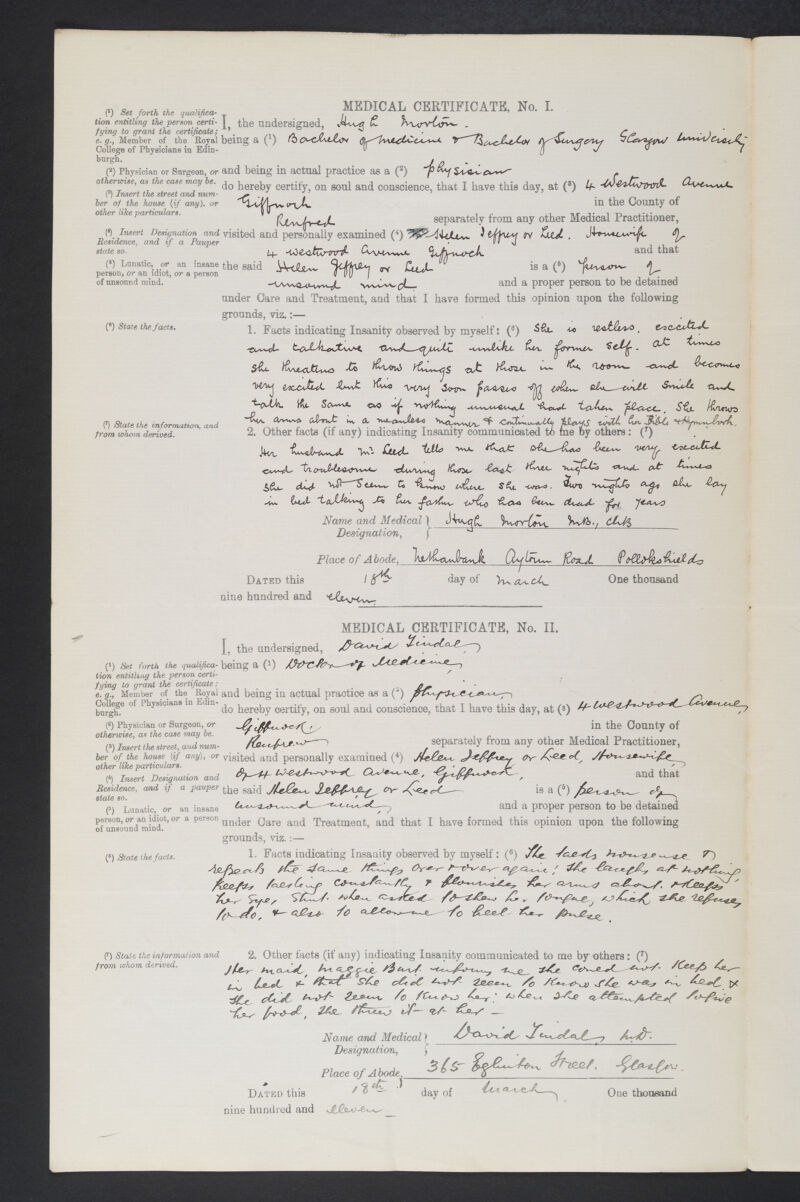 MEDICAL CERTIFICATE, No. I.
(¹) Set forth the qualifica-
tion entitling the person certi-
fying to grant the certificate;
e.g., Member of the Royal
College of Physicians in Edin-
burgh.
(²) Physician or Surgeon, or
otherwise, as the case may be.
(³) Insert the street and num-
ber of the house (if any), or
other like particulars.
(⁴) Insert Designation and
Residence, and if a Pauper
state so.
(⁵) Lunatic, or an insane
person, or an idiot, or a person
of unsound mind.
I, the undersigned, Hugh Morton.
being a (¹) Bachelor of medicine & Bachelor of Surgery Glasgow University
and being in actual practice as a (²) physician
do hereby certify, on soul and conscience, that I have this day, at (³) 4 Westwood Avenue
Giffnock in the County of
Renfred separately from any other Medical Practitioner,
visited and personally examined (⁴) Helen Jeffrey or Leed. Housewife of
4 Westwood Avenue Giffnock and that
the said Helen Jeffrey or Leed is a (⁵) person of
unsound mind and a proper person to be detained
under Care and Treatment, and that I have formed this opinion upon the following
grounds, viz.:—
(⁶) State the facts.
1. Facts indicating Insanity observed by myself: (⁶) She is restless, excited
and talkative and quite unlike her former self. at times
she threatens to throw things at those in the room and becomes
very excited but this very soon passes off when she will smile and
talk the same as if nothing unusual had taken place. She throws
her arms about in a meanless manner & continually plays with her Bible & Hymnbook.
(⁷) State the information, and
from whom derived.
2. Other facts (if any) indicating Insanity communicated to me by others: (⁷)
Her husband Mr Leed tells me that she has been very excited
and troublesome during those last three nights and at times
she did not seem to know where she was. Two nights ago she lay
in bed talking to her father who has been dead for years
Name and Medical Designation, Hugh Morton M.B., ChB
Place of Abode, Nethanbank Aytoun Road Pollokshields
DATED this 18th day of March One thousand
nine hundred and eleven
MEDICAL CERTIFICATE, No. II.
(¹) Set forth the qualifica-
tion entitling the person certi-
fying to grant the certificate;
e.g., Member of the Royal
College of Physicians in Edin-
burgh.
(²) Physician or Surgeon, or
otherwise, as the case may be.
(³) Insert the street, and num-
ber of the house (if any), or
other like particulars.
(⁴) Insert Designation and
Residence, and if a pauper
state so.
(⁵) Lunatic, or an insane
person, or an idiot, or a person
of unsound mind.
I, the undersigned, David Tindal,
being a (¹) Doctor of Medicine,
and being in actual practice as a (²) Physician,
do hereby certify, on soul and conscience, that I have this day, at (³) 4 Westwood Avenue,
Giffnock, in the County of
Renfrew separately from any other Medical Practitioner,
visited and personally examined (⁴) Helen Jeffrey or Leed, Housewife,
of 4 Westwood Avenue, Giffnock, and that
the said Helen Jeffrey or Leed is a (⁵) person of
unsound mind, and a proper person to be detained
under Care and Treatment, and that I have formed this opinion upon the following
grounds, viz.:—
(⁶) State the facts.
1. Facts indicating Insanity observed by myself: (⁶) She talks nonsense &
repeats the same things over & over again; she laughs at nothing,
keeps talking constantly & flourishes her arms about. & keeps
her eyes shut. when asked to shew her tongue, which she refuses
to do. & also to allow me to feel her pulse.
(⁷) State the information and
from whom derived.
2. Other facts (if any) indicating Insanity communicated to me by others: (⁷)
Her maid, Maggie Burt informs me she could not keep her
in bed & that she did not seem to know she was in bed &
she did not seem to know her: when she attempted to give
her food, she threw it at her —
Name and Medical Designation, David Tindal, M.D.
Place of Abode, 365 Eglinton Street. Glasgow.
DATED this 18th day of March One thousand
nine hundred and eleven —